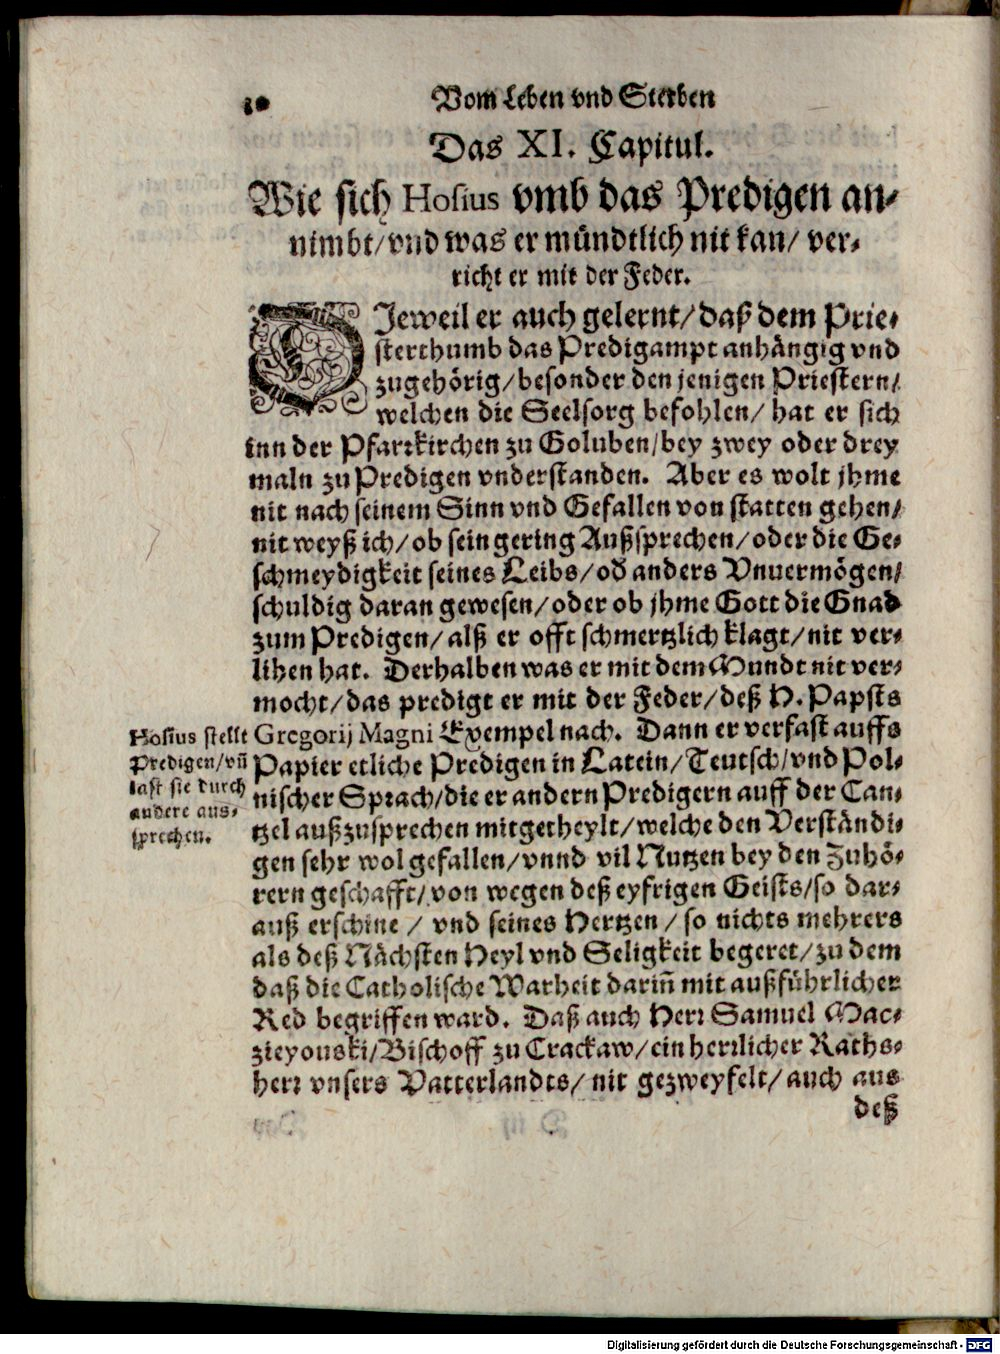 30 Vom Leben vnd Sterben
Das XI. Capitul.
Wie sich Hosius vmb das Predigen an-
nimbt/vnd was er mündtlich nit kan/ ver-
richt er mit der Feder.
DIeweil er auch gelernt/daß dem Prie-
sterthumb das Predigampt anhängig vnd
zugehörig/besonder den jenigen Priestern/
welchen die Seelsorg befohlen/ hat er sich
inn der Pfarrkirchen zu Goluben/bey zwey oder drey
maln zu Predigen vnderstanden. Aber es wolt jhme
nit nach seinem Sinn vnd Gefallen von statten gehen/
nit weyß ich/ob sein gering Außsprechen/oder die Ge-
schmeydigkeit seines Leibs/od̄ anders Vnuermögen/
schuldig daran gewesen/oder ob jhme Gott die Gnad
zum Predigen/alß er offt schmertzlich klagt/nit ver-
lihen hat. Derhalben was er mit dem Mundt nit ver-
mocht/das predigt er mit der Feder/deß H. Papsts
Gregorij Magni Exempel nach. Dann er verfast auffs
Papier etliche Predigen in Latein/Teutsch/vnd Pol-
nischer Sprach/die er andern Predigern auff der Can-
tzel außzusprechen mitgetheylt/welche den Verständi-
gen sehr wol gefallen/vnnd vil Nutzen bey den Zuhö-
rern geschafft/von wegen deß eyfrigen Geists/so dar-
auß erschine / vnd seines Hertzen/so nichts mehrers
als deß Nächsten Heyl vnd Seligkeit begeret/zu dem
daß die Catholische Warheit dariñ mit außführlicher
Red begriffen ward. Daß auch Herr Samuel Mac-
zieyouski/Bischoff zu Crackaw/ein herrlicher Raths-
herr vnsers Vatterlandts/nit gezweyfelt/auch aus
deß
Hosius stellt
Predigen/vñ
last sie durch
andere aus-
sprechen.
Digitalisierung gefördert durch die Deutsche Forschungsgemeinschaft - DFG